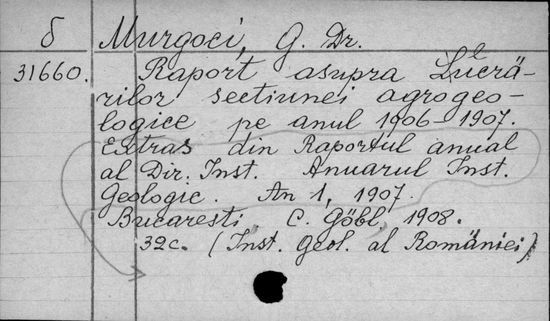 δ Murgoci, G. Dr.
31660. Raport asupra Lucră-
rilor sectiunei agrogeo-
logice pe anul 1906-1907.
Extras din Raportul anual
al Dir. Inst. Anuarul Inst.
Geologic. An 1, 1907.
Bucaresti C. Göbl, 1908.
32c. (Inst. Geol. al României)